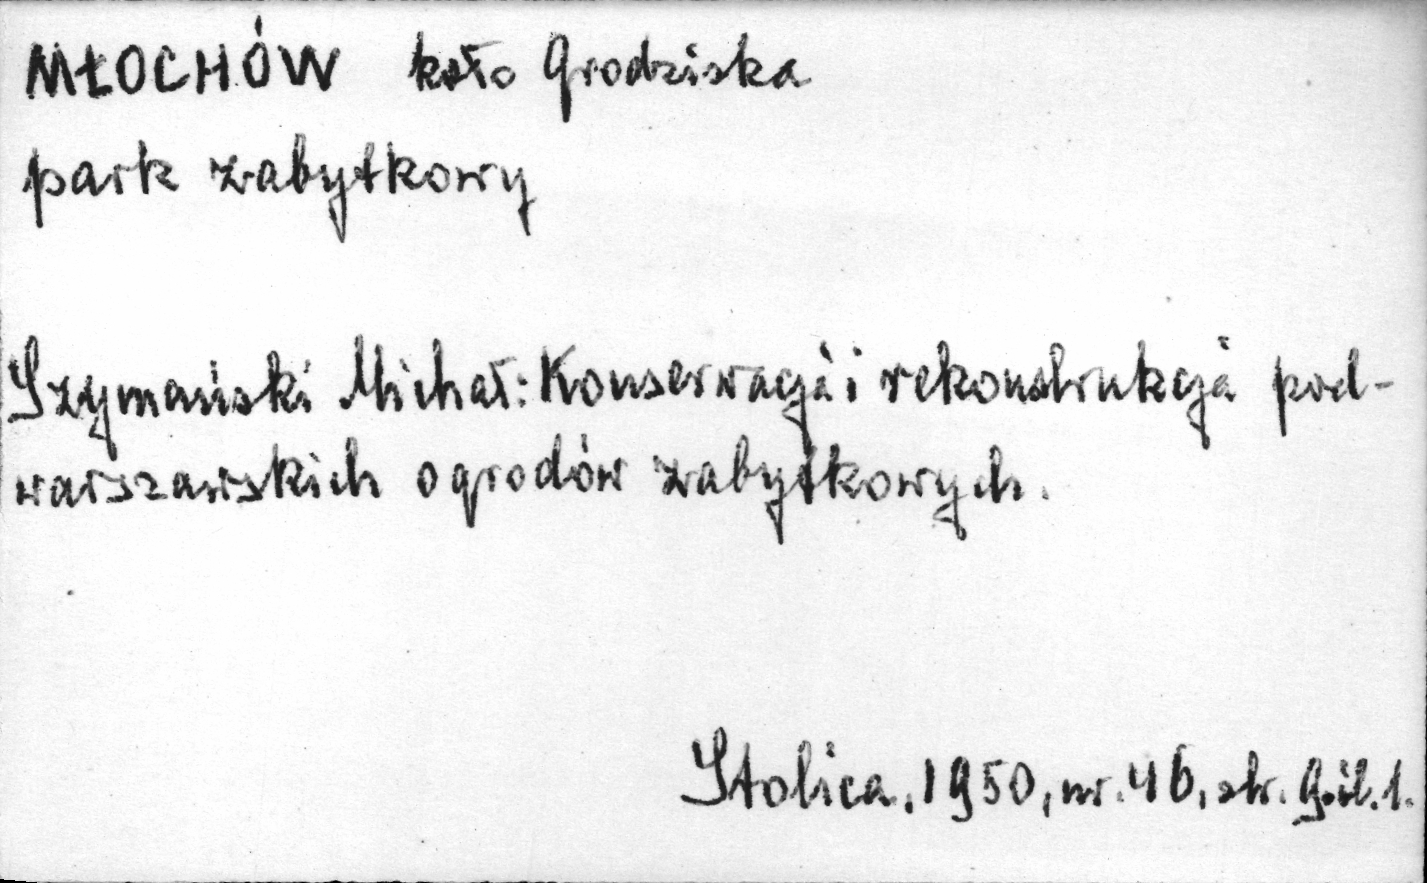 MŁOCHÓW koło Grodziska
park zabytkowy
Szymański Michał: Konserwacja i rekonstrukcja pod-
warszawskich ogrodów zabytkowych.
Stolica, 1950, nr. 46, str. 9. il. 1.